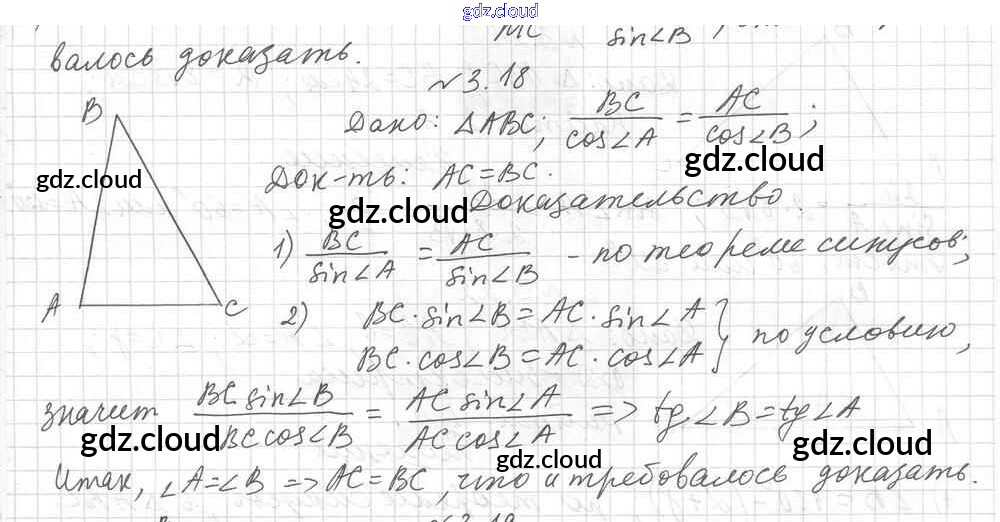 gdz.cloud
sin∠B
валось доказать.
№3.18
B
Дано: △ABC; BC/cos∠A = AC/cos∠B;
gdz.cloud
gdz.cloud
Док-ть: AC=BC.
gdz.cloud
Доказательство.
1) BC/sin∠A = AC/sin∠B - по теореме синусов;
A
C
2) BC·sin∠B=AC·sin∠A
BC·cos∠B=AC·cos∠A } по условию,
значит BC sin∠B/BC cos∠B = AC sin∠A/AC cos∠A => tg∠B=tg∠A
gdz.cloud
gdz.cloud
gdz.cloud
Итак, ∠A=∠B => AC=BC, что и требовалось доказать.